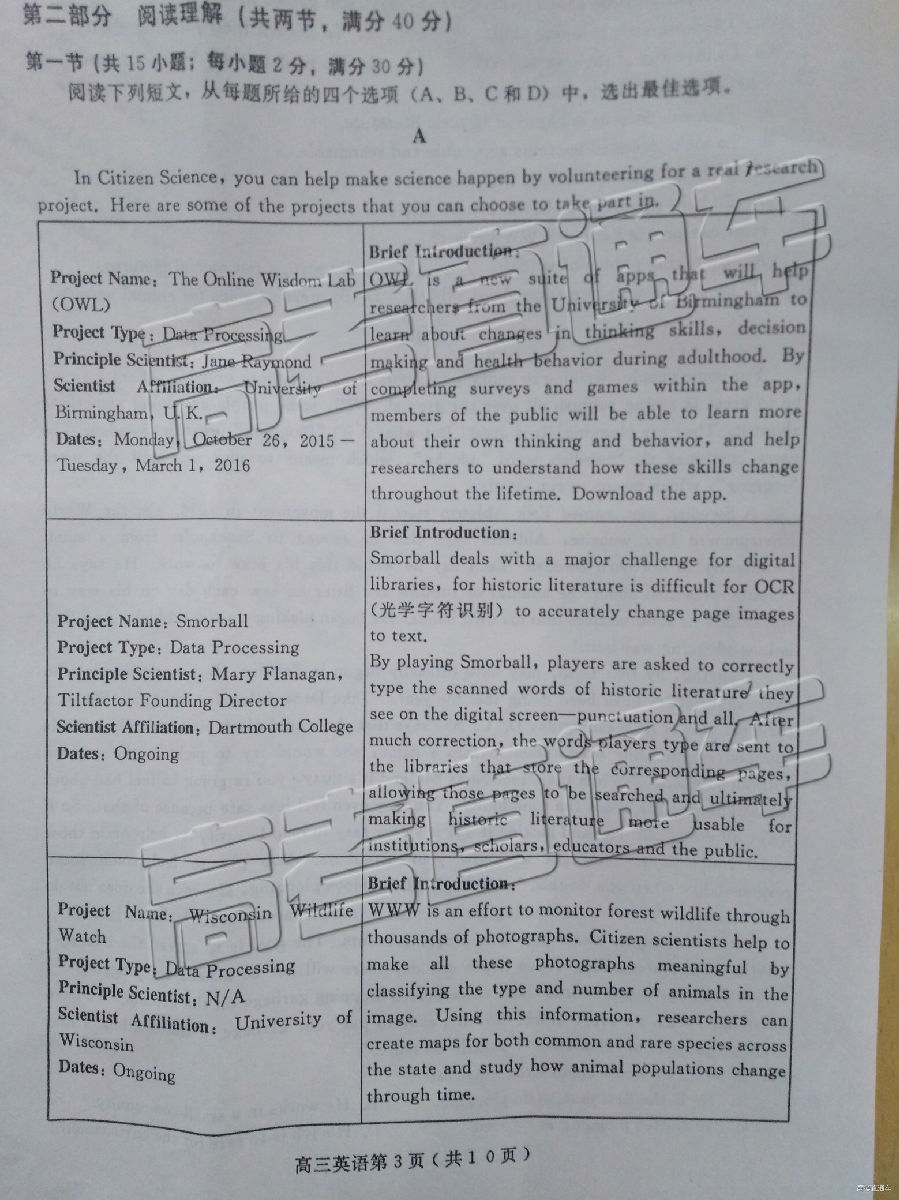 第二部分 阅读理解（共两节，满分40分）
第一节（共15小题；每小题2分，满分30分）
阅读下列短文，从每题所给的四个选项（A、B、C和D）中，选出最佳选项。
A
In Citizen Science, you can help make science happen by volunteering for a real research
project. Here are some of the projects that you can choose to take part in.
Project Name: The Online Wisdom Lab
(OWL)
Project Type: Data Processing
Principle Scientist: Jane Raymond
Scientist Affiliation: University of
Birmingham, U.K.
Dates: Monday, October 26, 2015—
Tuesday, March 1, 2016
Brief Introduction:
OWL is a new suite of apps that will help
researchers from the University of Birmingham to
learn about changes in thinking skills, decision
making and health behavior during adulthood. By
completing surveys and games within the app,
members of the public will be able to learn more
about their own thinking and behavior, and help
researchers to understand how these skills change
throughout the lifetime. Download the app.
Project Name: Smorball
Project Type: Data Processing
Principle Scientist: Mary Flanagan,
Tiltfactor Founding Director
Scientist Affiliation: Dartmouth College
Dates: Ongoing
Brief Introduction:
Smorball deals with a major challenge for digital
libraries, for historic literature is difficult for OCR
（光学字符识别）to accurately change page images
to text.
By playing Smorball, players are asked to correctly
type the scanned words of historic literature they
see on the digital screen—punctuation and all. After
much correction, the words players type are sent to
the libraries that store the corresponding pages,
allowing those pages to be searched and ultimately
making historic literature more usable for
institutions, scholars, educators and the public.
Project Name: Wisconsin Wildlife
Watch
Project Type: Data Processing
Principle Scientist: N/A
Scientist Affiliation: University of
Wisconsin
Dates: Ongoing
Brief Introduction:
WWW is an effort to monitor forest wildlife through
thousands of photographs. Citizen scientists help to
make all these photographs meaningful by
classifying the type and number of animals in the
image. Using this information, researchers can
create maps for both common and rare species across
the state and study how animal populations change
through time.
高三英语第3页（共10页）
高考直通车
高考直通车
高考直通车